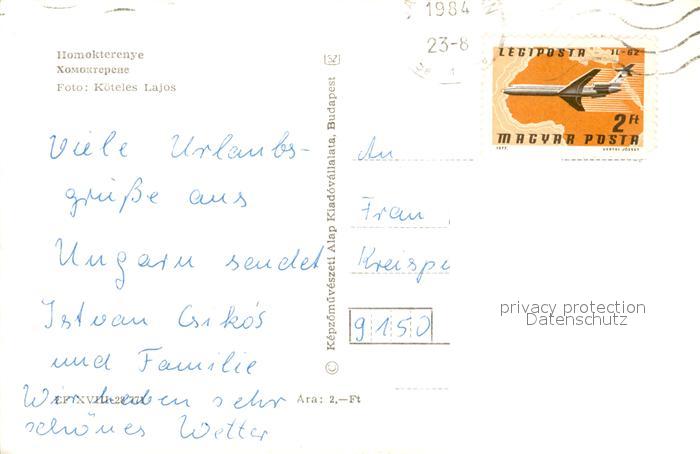 1984
23-8
Homokterenye
Хомоктерене
Foto: Köteles Lajos
LÉGIPOSTA IL-62
2 Ft
MAGYAR POSTA
1977 VERTEL JÓZSEF
Viele Urlaubs-
grüße aus
Ungarn sendet
Istvan Csikós
und Familie
Wir haben sehr
schönes Wetter
Ára: 2,—Ft
© Képzőművészeti Alap Kiadóvállalata, Budapest
An
Frau
Kreispe
9150
privacy protection
Datenschutz